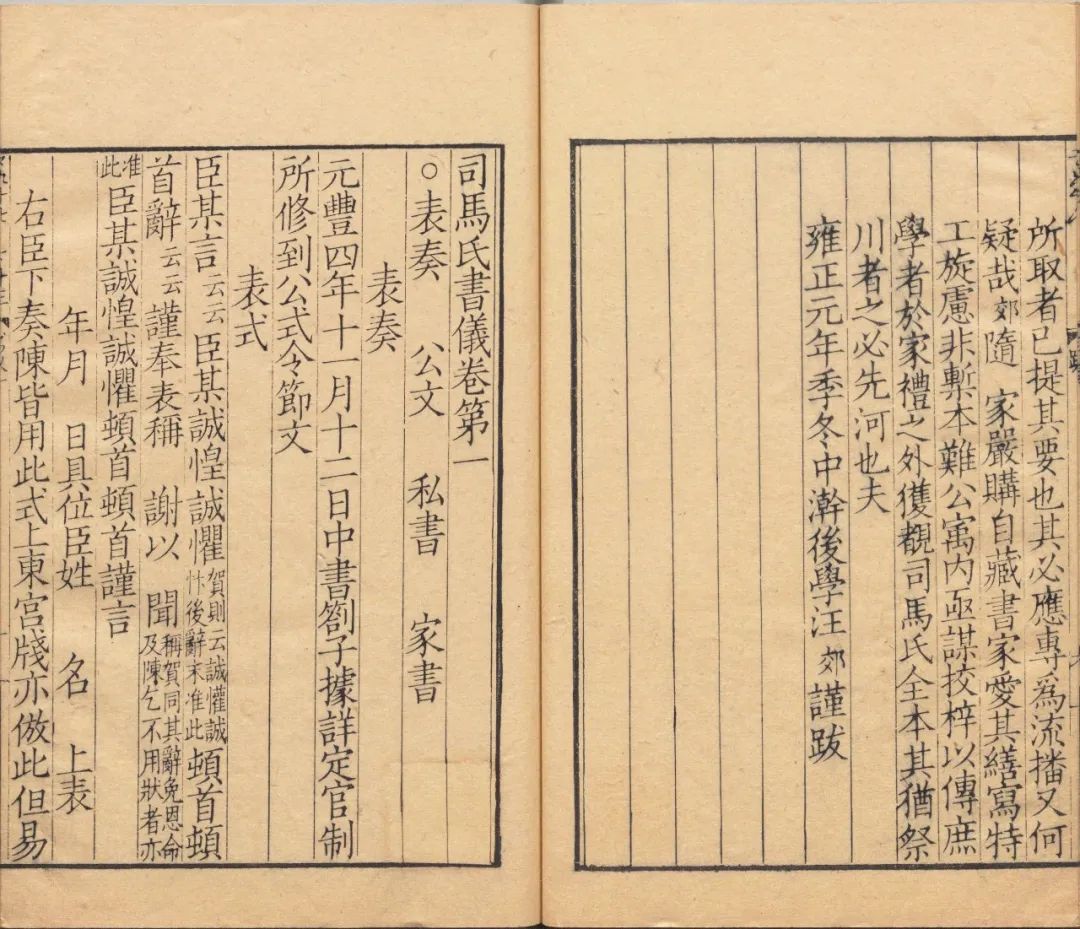 所取者已提其要也其必應專為流播又何
疑哉郊隨　家嚴購自藏書家愛其繕寫特
工旋慮非槧本難公寓內亟謀挍梓以傳庶
學者於家禮之外獲觀司馬氏全本其猶祭
川者之必先河也夫
雍正元年季冬中澣後學汪郊謹跋
司馬氏書儀卷第一
○表奏　公文　私書　家書
表奏
元豐四年十一月十二日中書劄子據詳定官制
所修到公式令節文
表式
臣某言云云臣某誠惶誠懼賀則云誠懽誠忭後辭末准此頓首頓
首辭云云謹奉表稱　謝以　聞稱賀同其辭免恩命及陳乞不用狀者亦
准此臣某誠惶誠懼頓首頓首謹言
年月　日具位臣姓　名　上表
右臣下奏陳皆用此式上東宮牋亦倣此但易